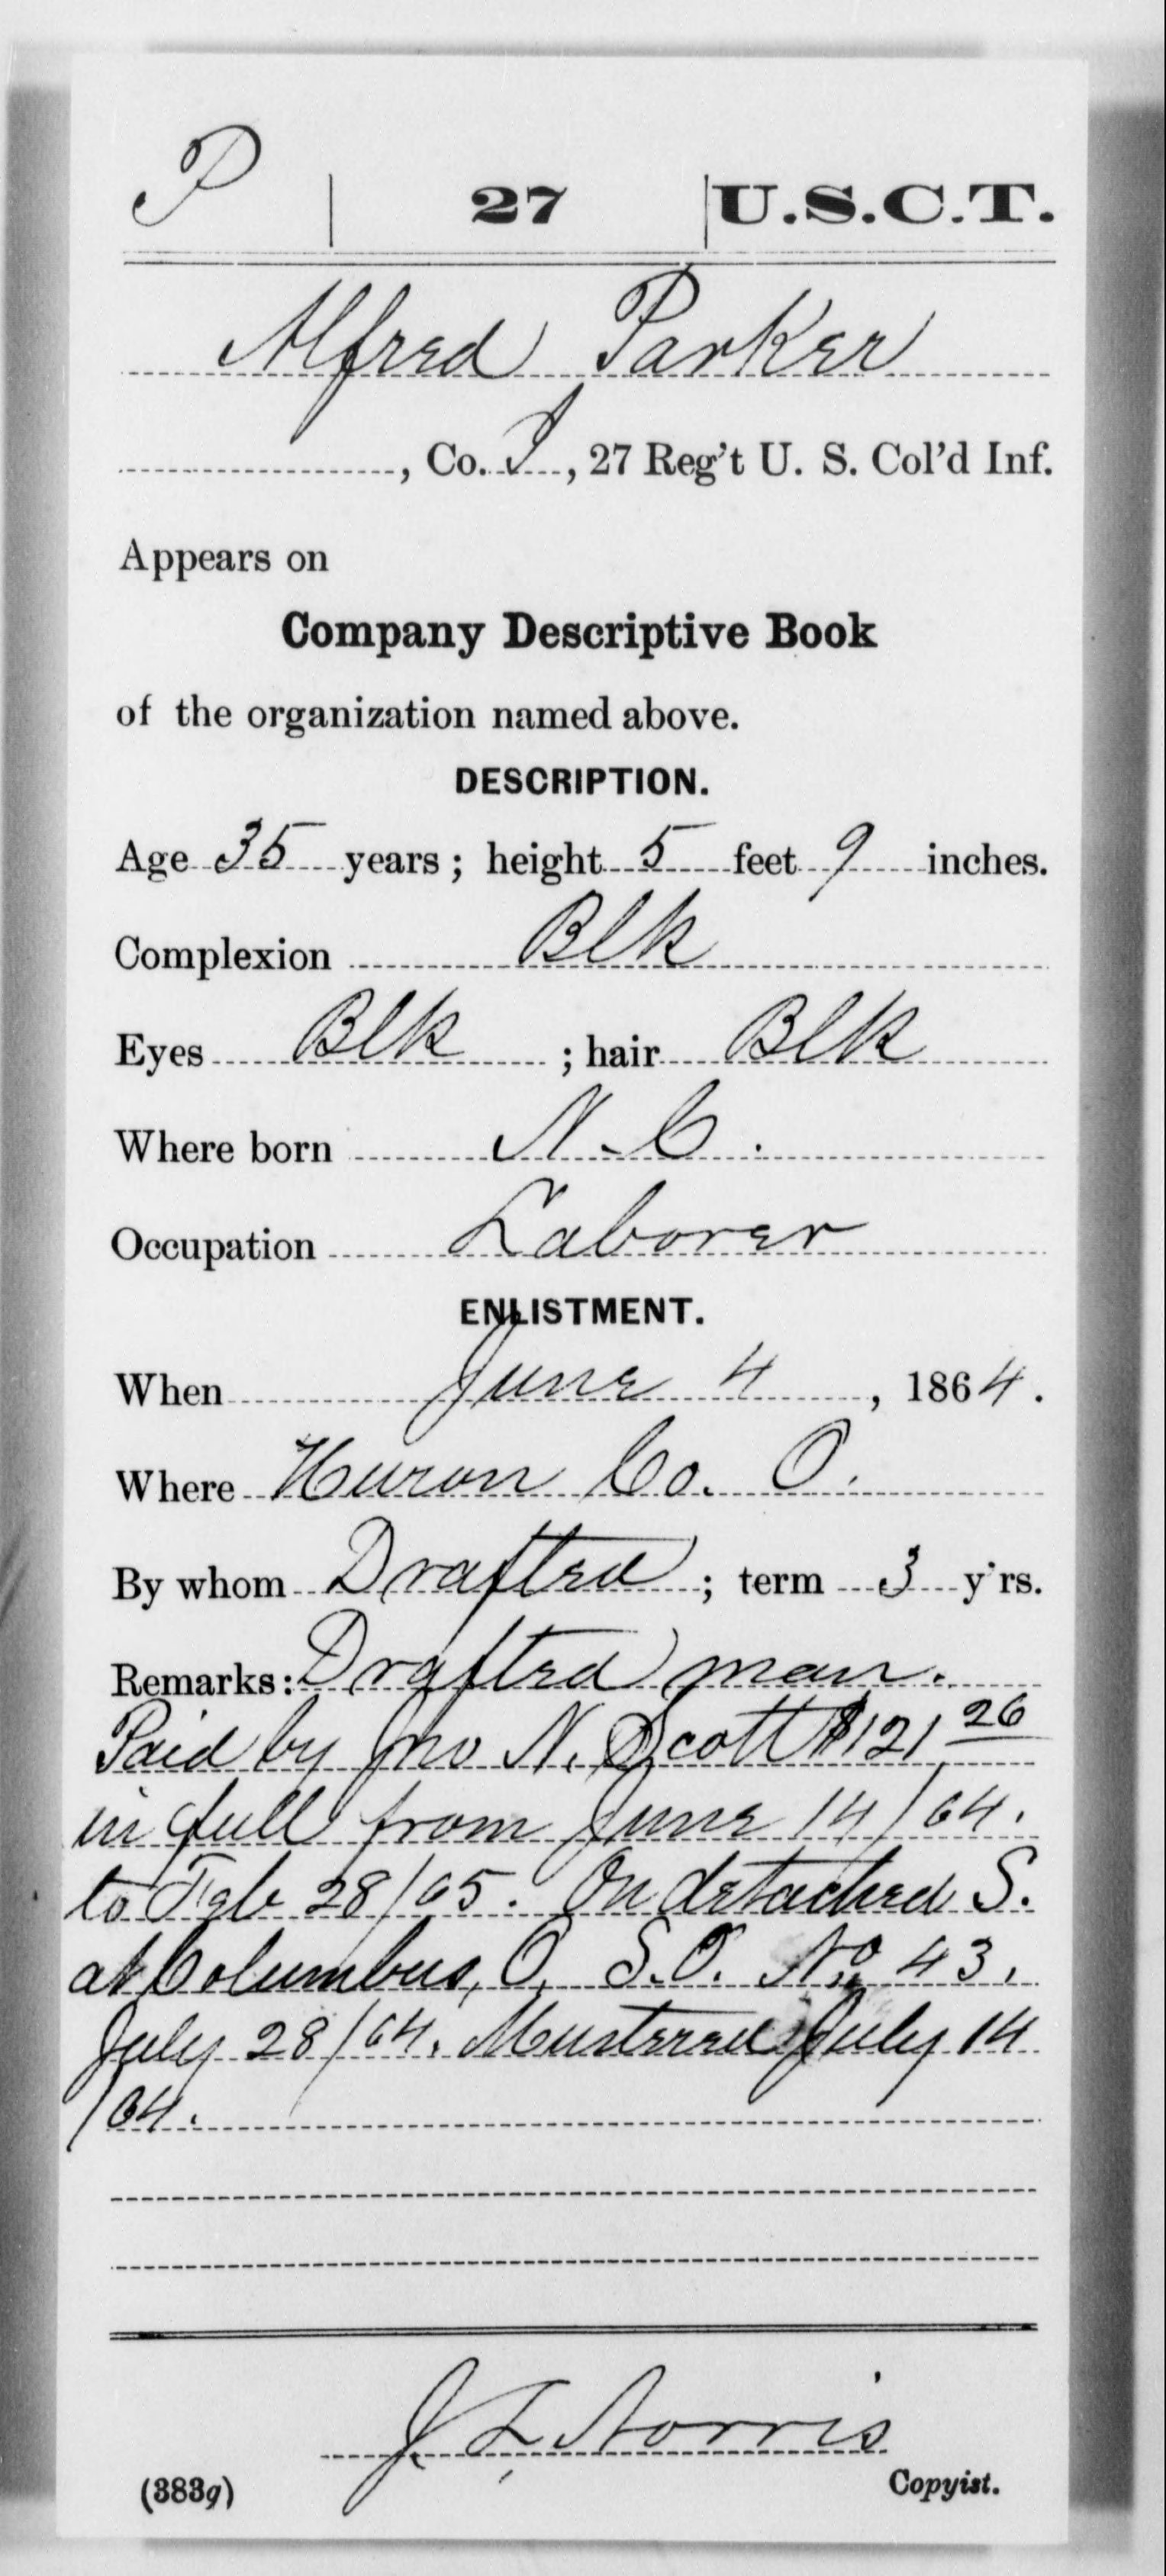 P | 27 | U.S.C.T.
Alfred Parker
, Co. I, 27 Reg't U. S. Col'd Inf.
Appears on
Company Descriptive Book
of the organization named above.
DESCRIPTION.
Age 35 years; height 5 feet 9 inches.
Complexion Blk
Eyes Blk ; hair Blk
Where born N.C.
Occupation Laborer
ENLISTMENT.
When June 4, 1864.
Where Huron Co. O.
By whom Drafted ; term 3 y'rs.
Remarks: Drafted man.
Paid by Jno N. Scott $121 26
in full from June 14/64.
to Feb 28/65. On detached S.
at Columbus, O. S.O. No. 43,
July 28/64. Mustered July 14
/64.
J. L. Norris
(383g) Copyist.